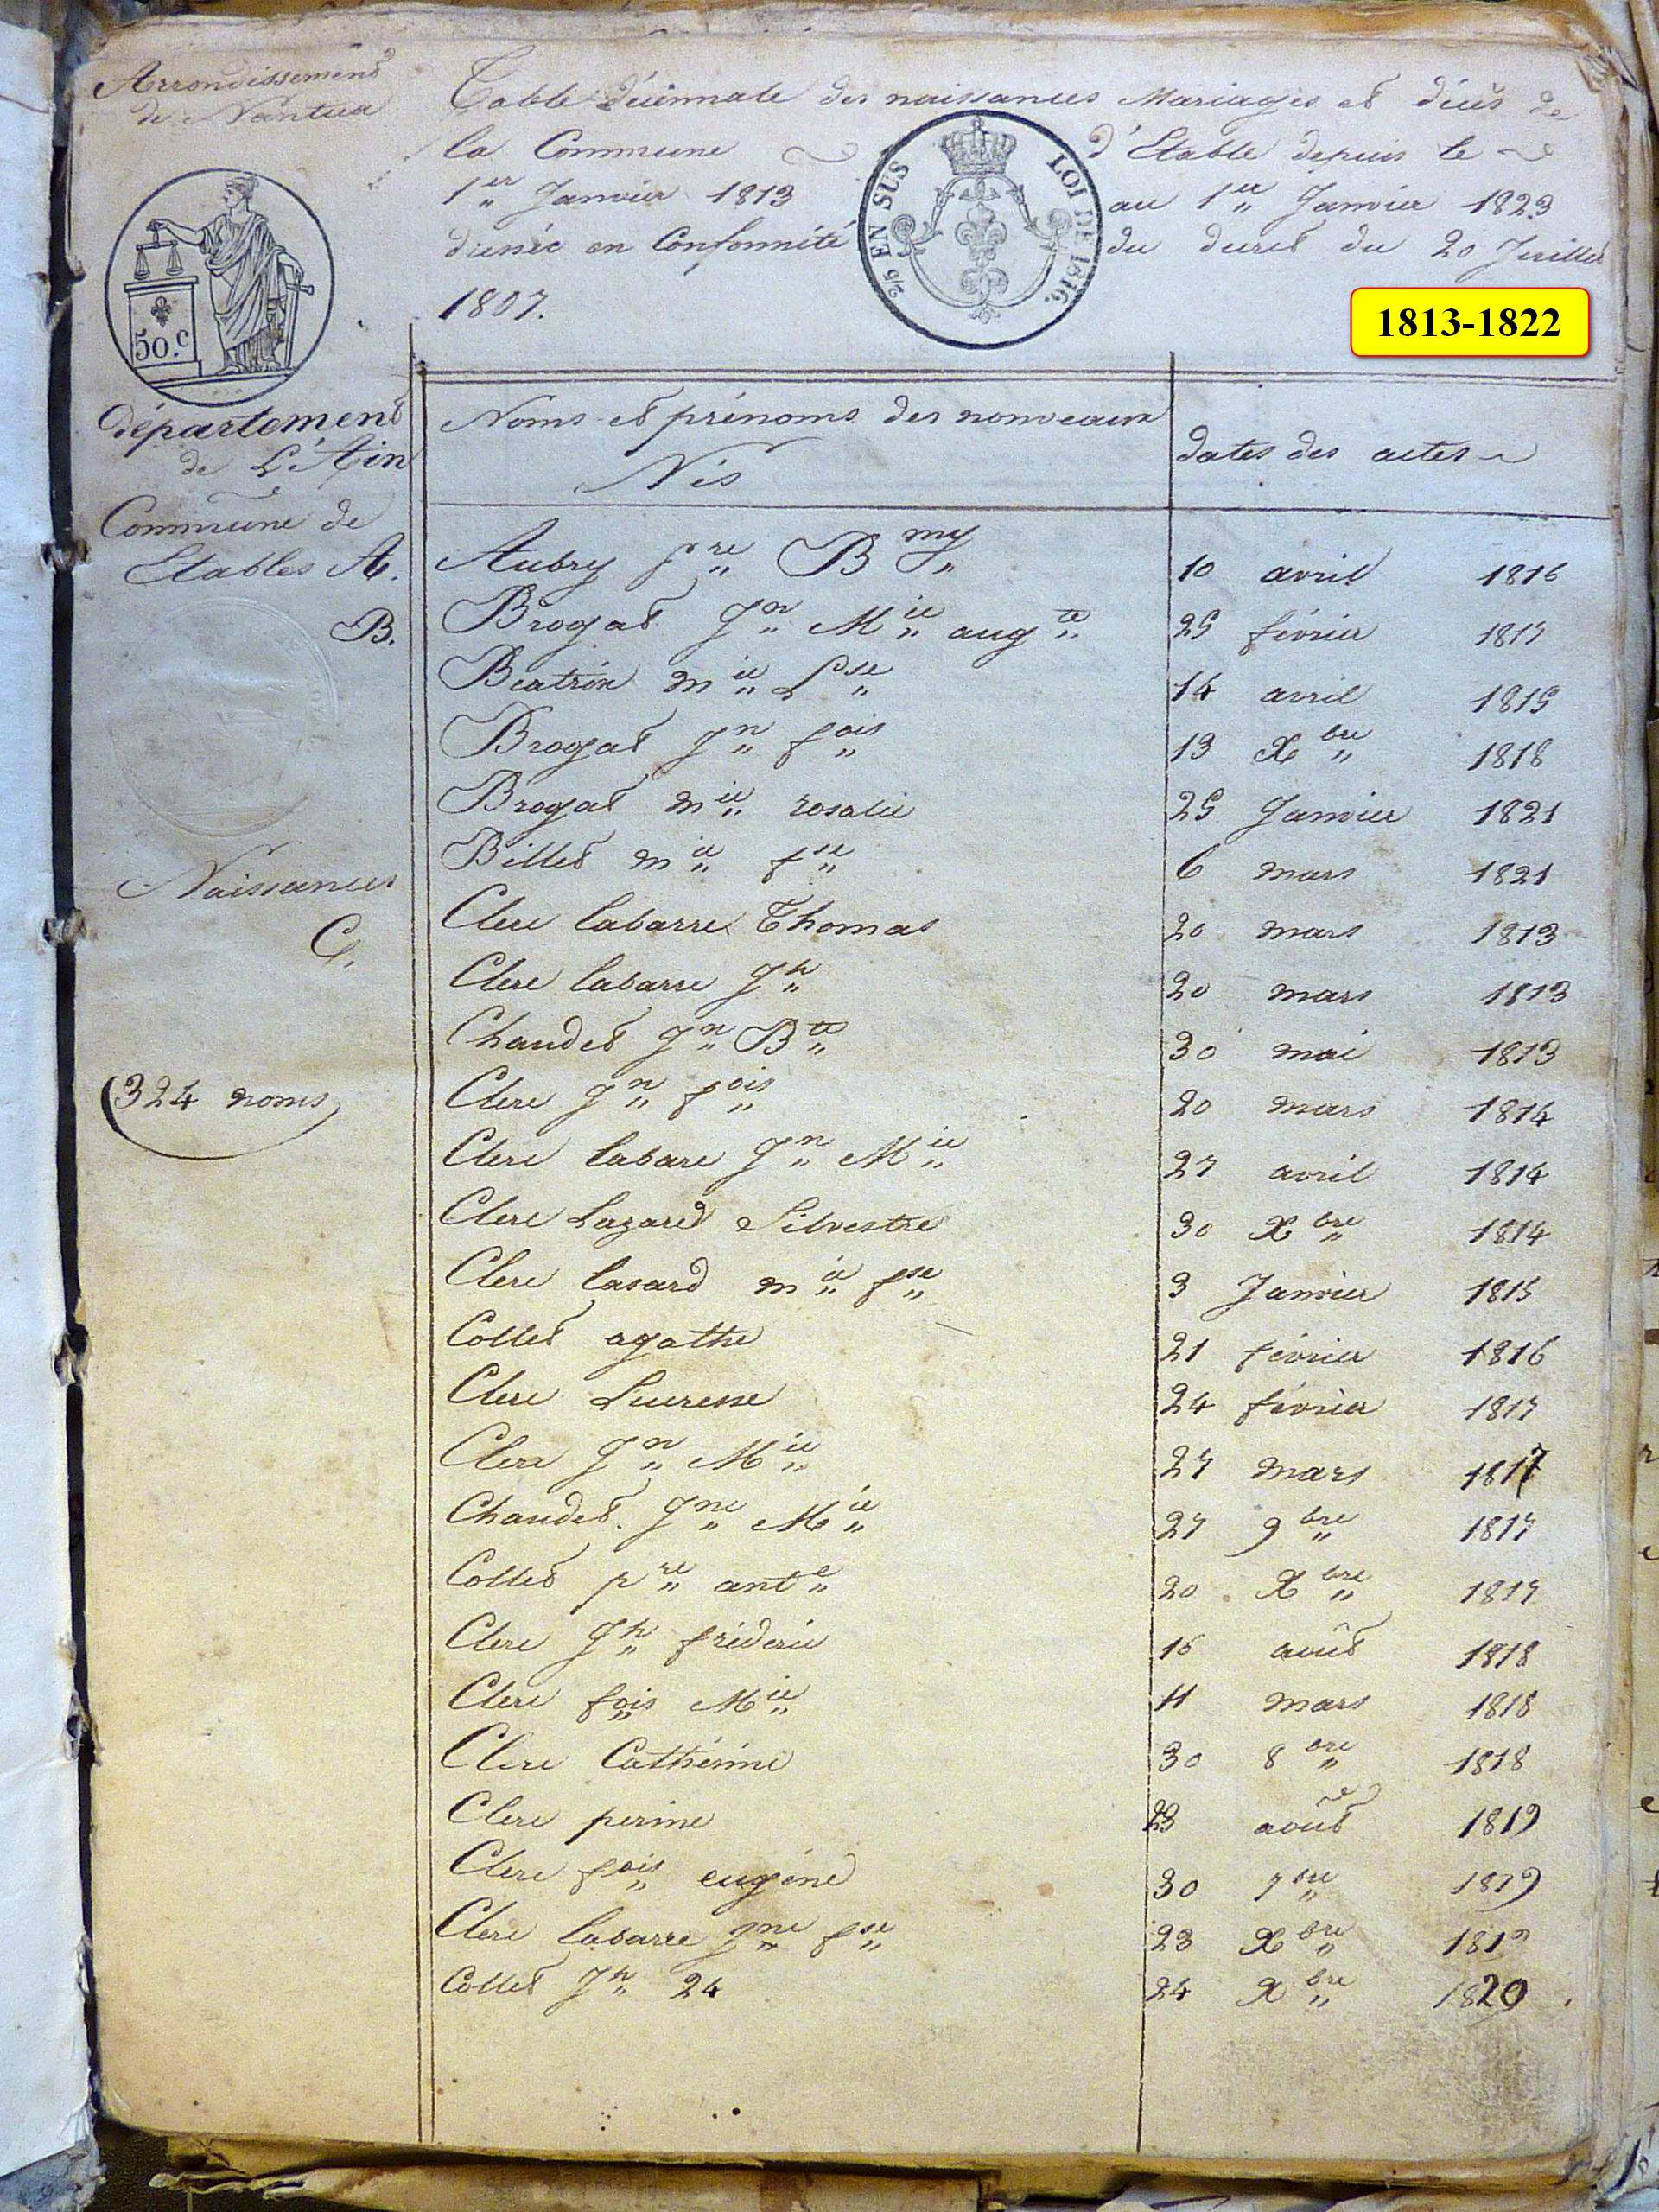 Arrondissement
de Nantua
Table décennale des naissances Mariages et décès de
la Commune d'Etable depuis le
1er Janvier 1813 au 1er Janvier 1823
dressée en Conformité du decret du 20 Juillet
1807.
2/5 EN SUS LOI DE 1816.
50.c
1813-1822
département
de L'Ain
Commune de
Etables A.
B.
Naissances
C.
(324 noms)
Noms et prénoms des nouveaux
Nés
dates des actes
Aubry pre Bmy 10 avril 1816
Brogat Jn Mie augte 25 février 1817
Beatrix mie Lse 14 avril 1815
Brogat Jn fois 13 Xbre 1818
Brogat mie rosalie 25 Janvier 1821
Billet mie fse 6 mars 1821
Clere labarre Thomas 20 mars 1813
Clere labarre Jh 20 mars 1813
Chaudet Jn Bte 30 mai 1813
Clere Jn fois 20 mars 1814
Clere labare Jn Mie 27 avril 1814
Clere Lazared Silvestre 30 Xbre 1814
Clere lasard mie fse 3 Janvier 1815
Collet agathe 21 février 1816
Clere Lucresse 24 février 1817
Clere Jn Mie 27 mars 1817
Chaudet Jne Mie 27 9bre 1817
Collet pre ante 20 Xbre 1817
Clere Jh fréderic 15 août 1818
Clere fois Mie 11 mars 1818
Clere Cathérine 30 8bre 1818
Clere perine 23 août 1819
Clere fois eugéne 30 7bre 1819
Clere labarre Jne fse 23 Xbre 1819
Collet Jh 24 24 Xbre 1820